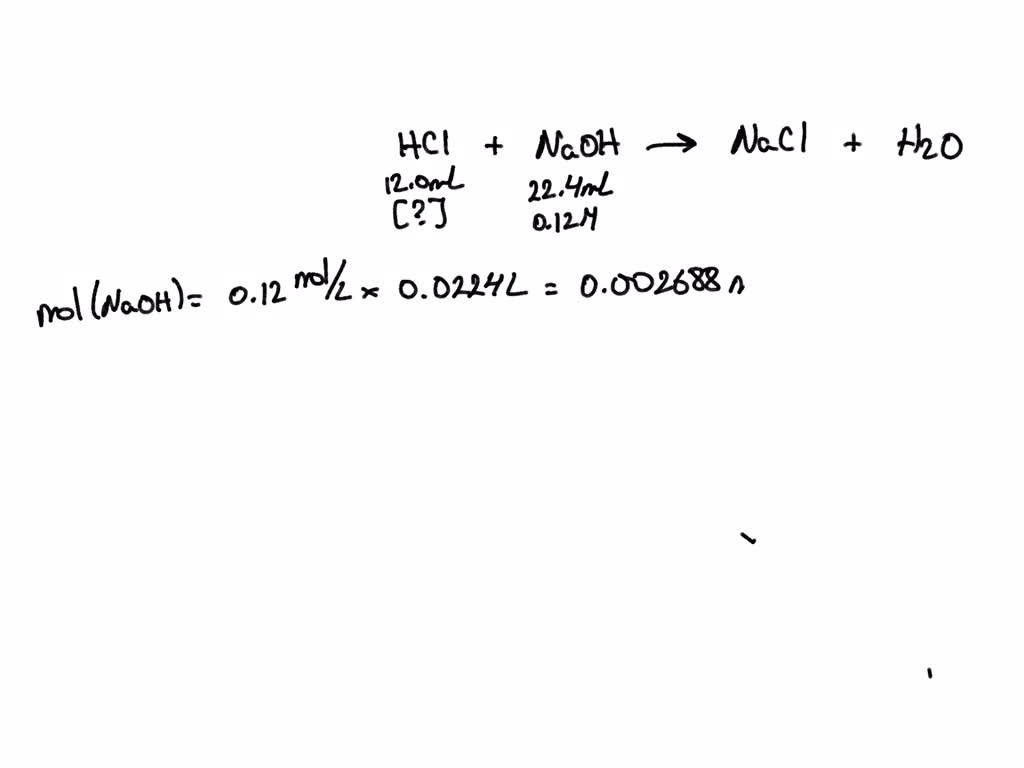 HCl + NaOH → NaCl + H2O
12.0mL 22.4mL
[?] 0.12M
mol(NaOH)= 0.12 mol/L × 0.0224L = 0.002688 n